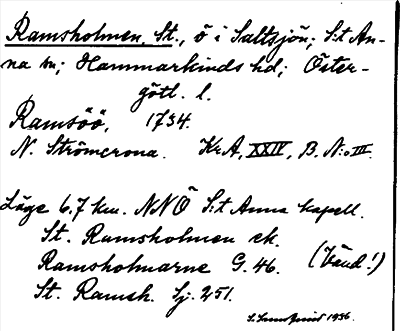 Ramsholmen, St., ö i Saltsjön; S:t An-
na sn; Hammarkinds hd; Öster-
götl. l.
Ramsöö, 1734.
N. Strömcrona. Kr.A, XXIV, B. N:o III.
Läge 6,7 km. NNÖ S:t Anna kapell.
St. Ramsholmen ek.
Ramsholmarne G. 46. (Vänd!)
St. Ramsh. Sj. 251.
1936.